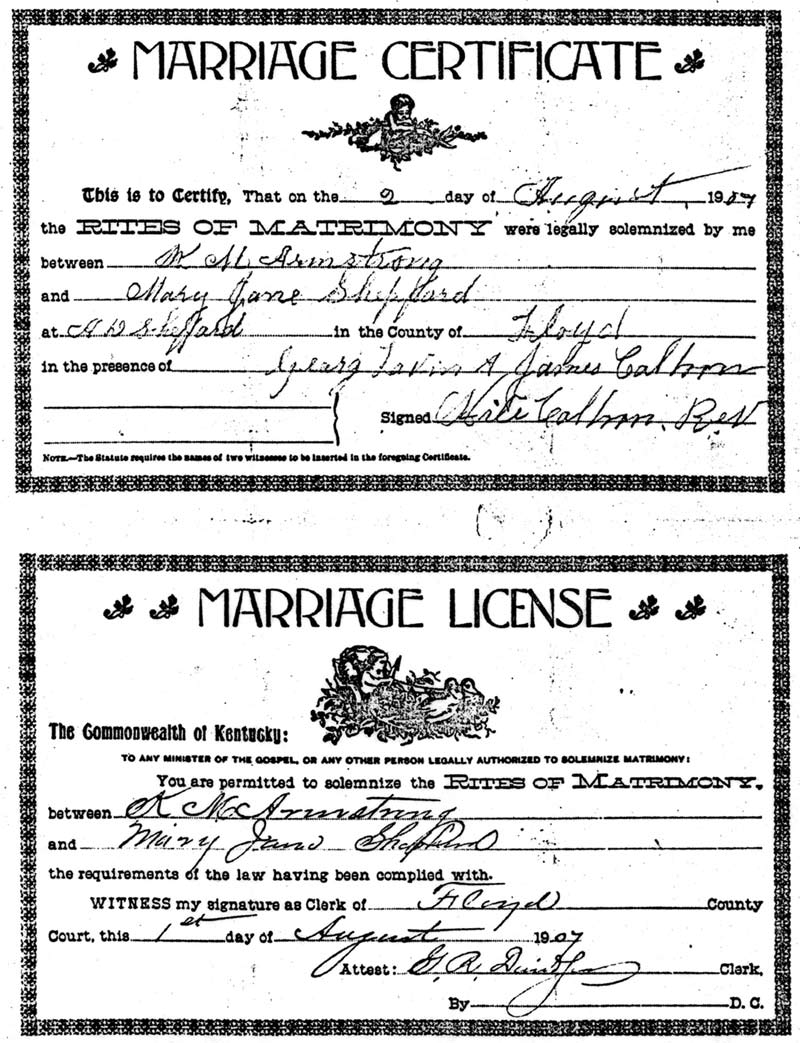 MARRIAGE CERTIFICATE
This is to Certify, That on the 2 day of August, 1907
the RITES OF MATRIMONY were legally solemnized by me
between K M Armstrong
and Mary Jane Sheppard
at A D Sheppard in the County of Floyd
in the presence of James Calhoon
Signed Calhoon. Rev
NOTE.—The Statute requires the names of two witnesses to be inserted in the foregoing Certificate.
MARRIAGE LICENSE
The Commonwealth of Kentucky:
TO ANY MINISTER OF THE GOSPEL, OR ANY OTHER PERSON LEGALLY AUTHORIZED TO SOLEMNIZE MATRIMONY:
You are permitted to solemnize the RITES OF MATRIMONY,
between K M Armstrong
and Mary Jane Sheppard
the requirements of the law having been complied with.
WITNESS my signature as Clerk of Floyd County
Court, this 1st day of August 1907
Attest: Clerk.
By D. C.